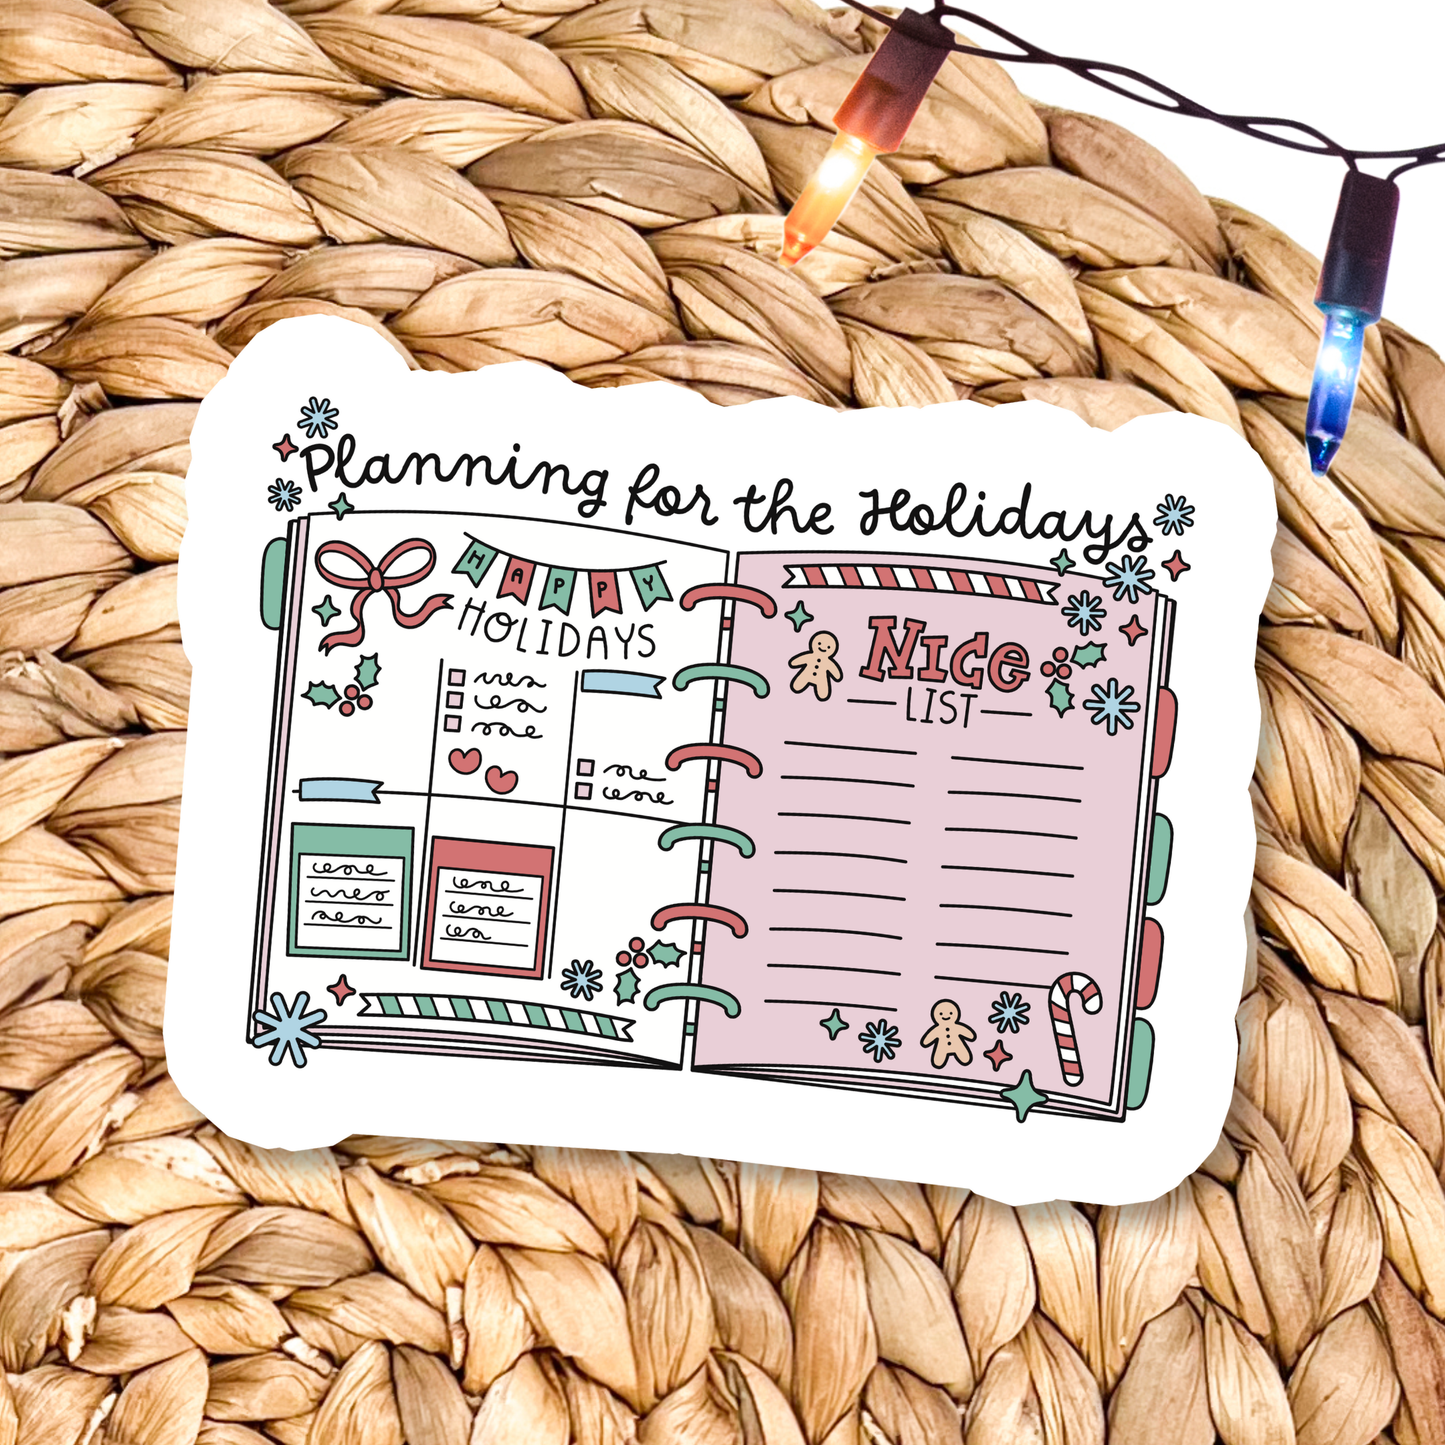 Planning for the Holidays
HAPPY
HOLIDAYS
NICE
LIST